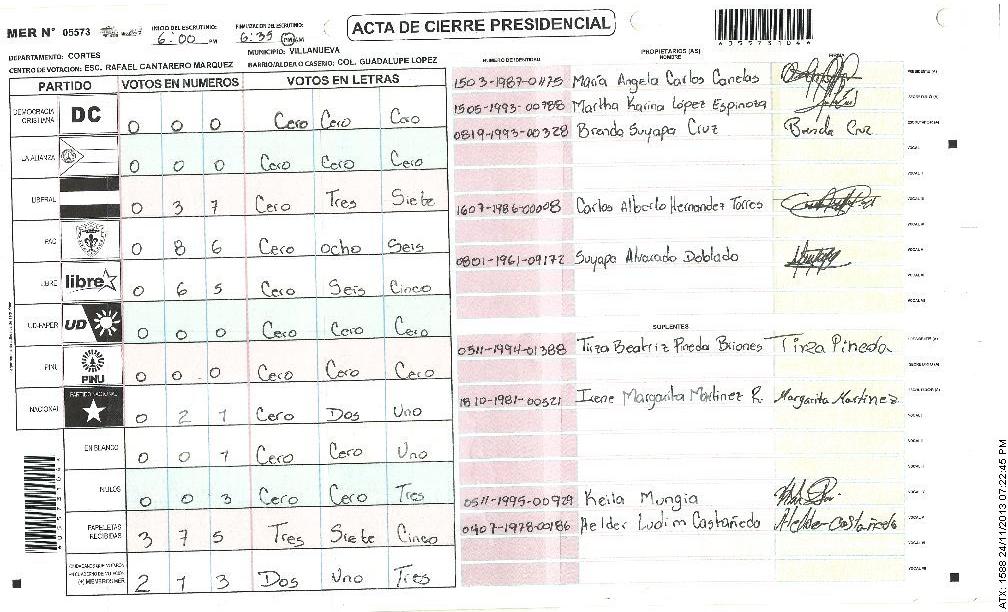 MER Nº 05573
INICIO DEL ESCRUTINIO: 6:00 PM
FINALIZACION DEL ESCRUTINIO: 6:35 PM
ACTA DE CIERRE PRESIDENCIAL
DEPARTAMENTO: CORTES
MUNICIPIO: VILLANUEVA
CENTRO DE VOTACION: ESC. RAFAEL CANTARERO MARQUEZ
BARRIO/ALDEA O CASERIO: COL. GUADALUPE LOPEZ
PARTIDO VOTOS EN NUMEROS VOTOS EN LETRAS
DEMOCRACIA CRISTIANA DC 0 0 0 Cero Cero Cero
LA ALIANZA 0 0 0 Cero Cero Cero
LIBERAL 0 3 7 Cero Tres Siete
PAC 0 8 6 Cero ocho Seis
LIBRE libre 0 6 5 Cero Seis Cinco
UD-FAPER UD 0 0 0 Cero Cero Cero
PINU PINU 0 0 0 Cero Cero Cero
NACIONAL PARTIDO NACIONAL 0 2 1 Cero Dos Uno
EN BLANCO 0 0 1 Cero Cero Uno
NULOS 0 0 3 Cero Cero Tres
PAPELETAS RECIBIDAS 3 7 5 Tres Siete Cinco
CIUDADANOS QUE VOTARON EN CUADERNO DE VOTACION (+) MIEMBROS MER 2 1 3 Dos Uno Tres
NUMERO DE IDENTIDAD PROPIETARIOS (AS) NOMBRE FIRMA
1503-1987-01175 María Angela Carlos Canelas PRESIDENTE (A)
1505-1993-00788 Martha Karina López Espinoza SECRETARIO (A)
0819-1993-00328 Brenda Suyapa Cruz Brenda Cruz ESCRUTADOR (A)
VOCAL I
1607-1986-00008 Carlos Alberto Hernandez Torres
0801-1961-09172 Suyapa Alvarado Doblado
SUPLENTES
0511-1994-01388 Tirza Beatriz Pineda Briones Tirza Pineda PRESIDENTE (A)
SECRETARIO (A)
1810-1981-00521 Irene Margarita Martinez R. Margarita Martinez ESCRUTADOR (A)
VOCAL I
0511-1995-00929 Keila Mungia
0407-1978-00186 Aelder Ludim Castañeda Aelder Castañeda
ATX: 1588 24/11/2013 07:22:45 PM